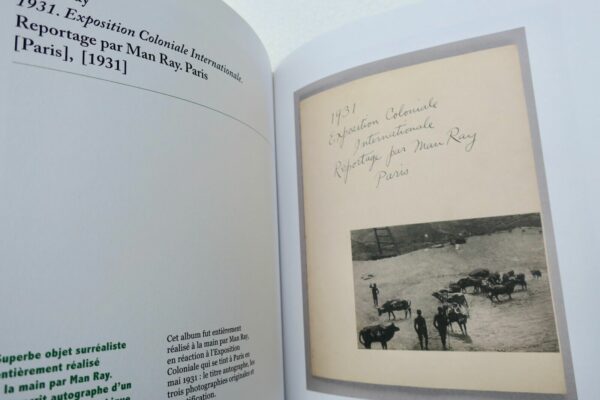 1931. Exposition Coloniale Internationale.
Reportage par Man Ray. Paris
[Paris], [1931]
Superbe objet surréaliste
entièrement réalisé
la main par Man Ray.
autographe d'un
Cet album fut entièrement
réalisé à la main par Man Ray
en réaction à l'Exposition
Coloniale qui se tint à Paris en
mai 1931 : le titre autographe, les
trois photographies originales et
1931
Exposition Coloniale
Internationale
Reportage par Man Ray
Paris